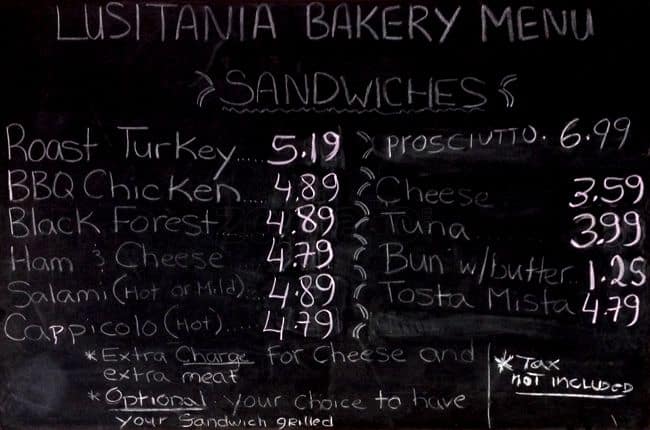 LUSITANIA BAKERY MENU
SANDWICHES
Roast Turkey.... 5.19
BBQ Chicken... 4.89
Black Forest... 4.89
Ham & Cheese 4.79
Salami (Hot or Mild). 4.89
Cappicolo (Hot).... 4.79
PROSCIUTTO. 6.99
Cheese 3.59
Tuna 3.99
Bun w/butter.. 1.25
Tosta Mista 4.79
*Extra Charge for Cheese and
extra meat
*Optional. your choice to have
your Sandwich grilled
* Tax
NOT INCLUDED